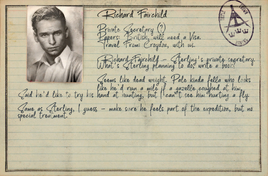 Richard Fairchild
Private Secretary (?)
Papers: British, will need a Visa.
Travel: From Croydon, with us.
Richard Fairchild - Sterling's private secretary.
What's Sterling planning to do, write a
Seems like dead weight. Pale kinda fella who looks
like he'd run a mile if a gazelle coughed at him.
Said he'd like to try his hand at hunting, but I can't see him hurting a fly.
Same as Sterling, I guess - make sure he feels part of the expedition, but no
special treatment.